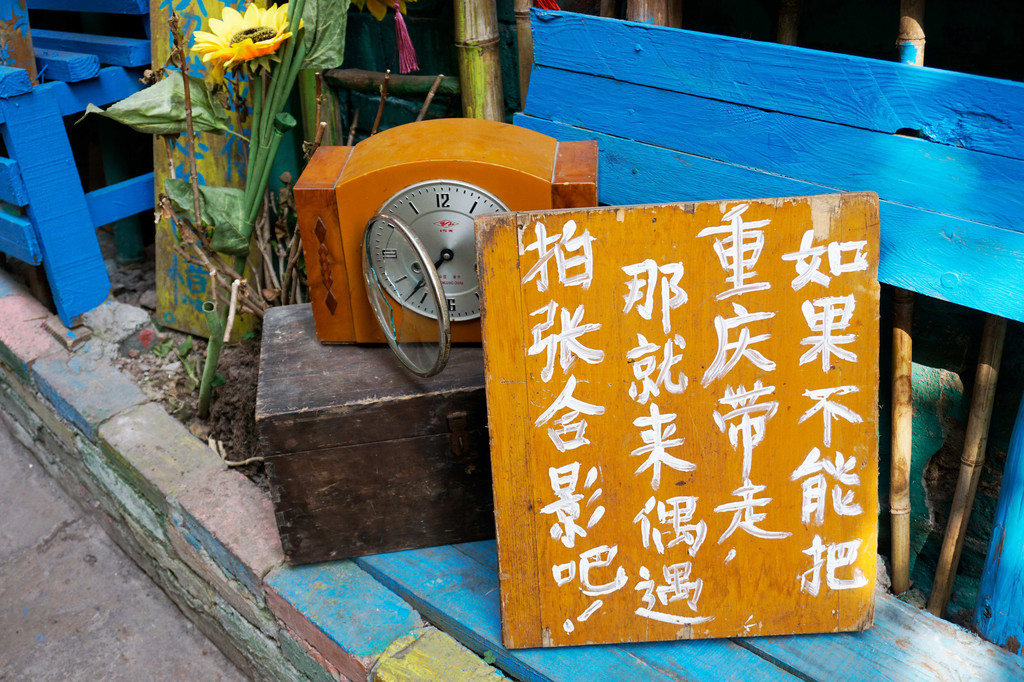 如果不能把
重庆带走，
那就来偶遇
拍张合影吧！
12
6